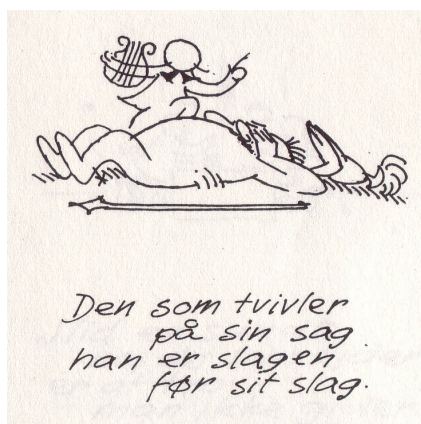 Den som tvivler
på sin sag
han er slagen
før sit slag.